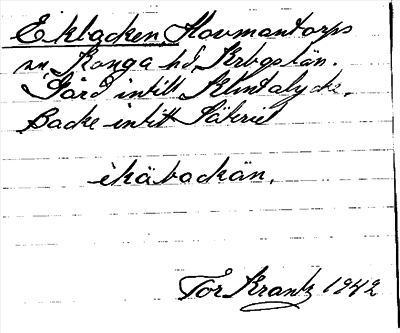 Ekbacken, Hovmantorps
sn, Konga hd, Krbgs län.
Gärd intill Klintalycke.
Backe intill Säkriet
èkäbackän.
Tor Krantz 1942